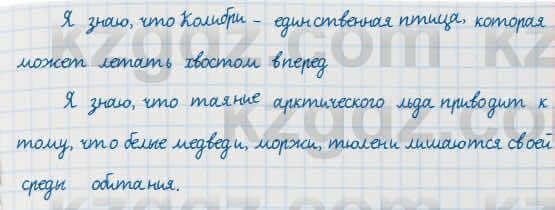 Я знаю, что Колибри - единственная птица, которая
может летать хвостом вперед
Я знаю, что таяние арктического льда приводит к
тому, что белые медведи, моржи, тюлени лишаются своей
среды обитания.